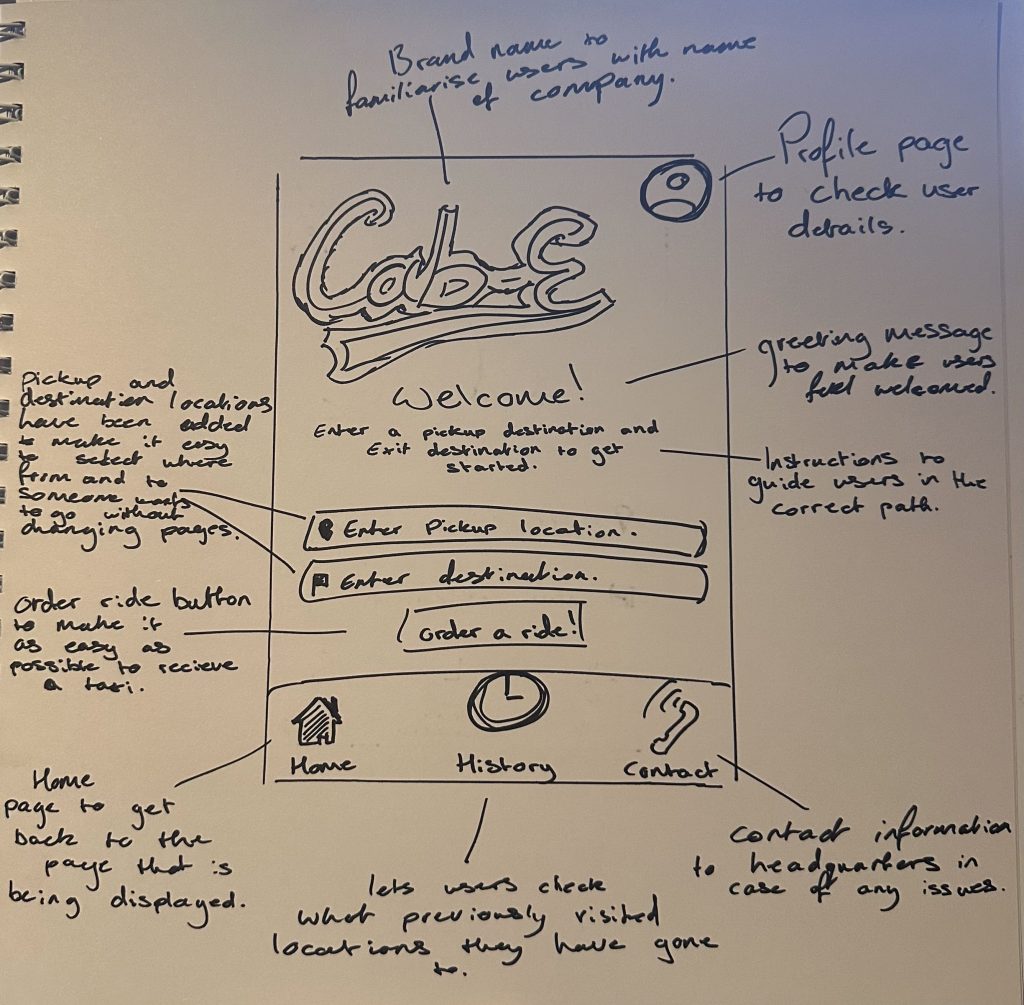 Brand name to
familiarise users with name
of company.
Profile page
to check user
details.
Cab-E
greeting message
to make users
feel welcomed.
Welcome!
Enter a pickup destination and
Exit destination to get
started.
Instructions to
guide users in the
correct path.
Pickup and
destination locations
have been added
to make it easy
to select where
from and to
someone wants
to go without
changing pages.
Enter Pickup location.
Enter destination.
order a ride!
Order ride button
to make it
as easy as
possible to recieve
a taxi.
Home
History
Contact
Home
page to get
back to the
page that is
being displayed.
lets users check
what previously visited
locations they have gone
to.
Contact information
to headquarters in
case of any issues.